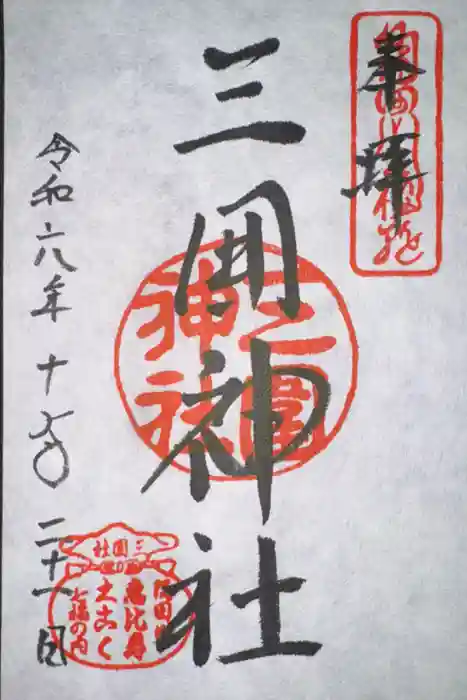 奉拝
三囲神社
三圍神社
令和六年十一月二十一日
三囲社
隅田川
恵比寿
大こく
七福の内